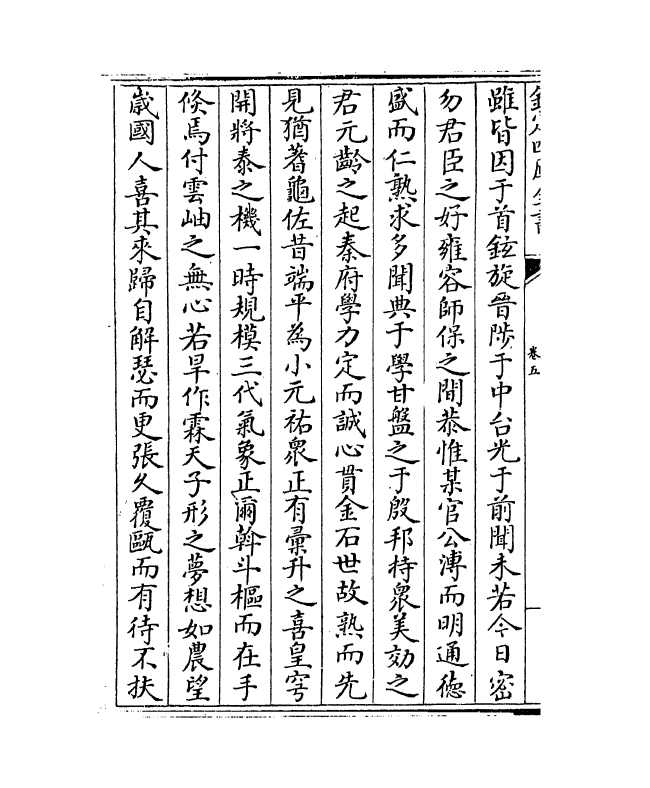 欽定四庫全書
卷五
雖皆因于首鉉旋晉陟于中台光于前聞未若今日密
勿君臣之好雍容師保之間恭惟某官公溥而明通德
盛而仁熟求多聞典于學甘盤之于殷邦持衆美効之
君元齡之起秦府學力定而誠心貫金石世故熟而先
見猶蓍龜佐昔端平為小元祐衆正有彚升之喜皇穹
開將泰之機一時規模三代氣象正爾斡斗樞而在手
倐焉付雲岫之無心若旱作霖天子形之夢想如農望
歲國人喜其來歸自解瑟而更張久覆甌而有待不扶